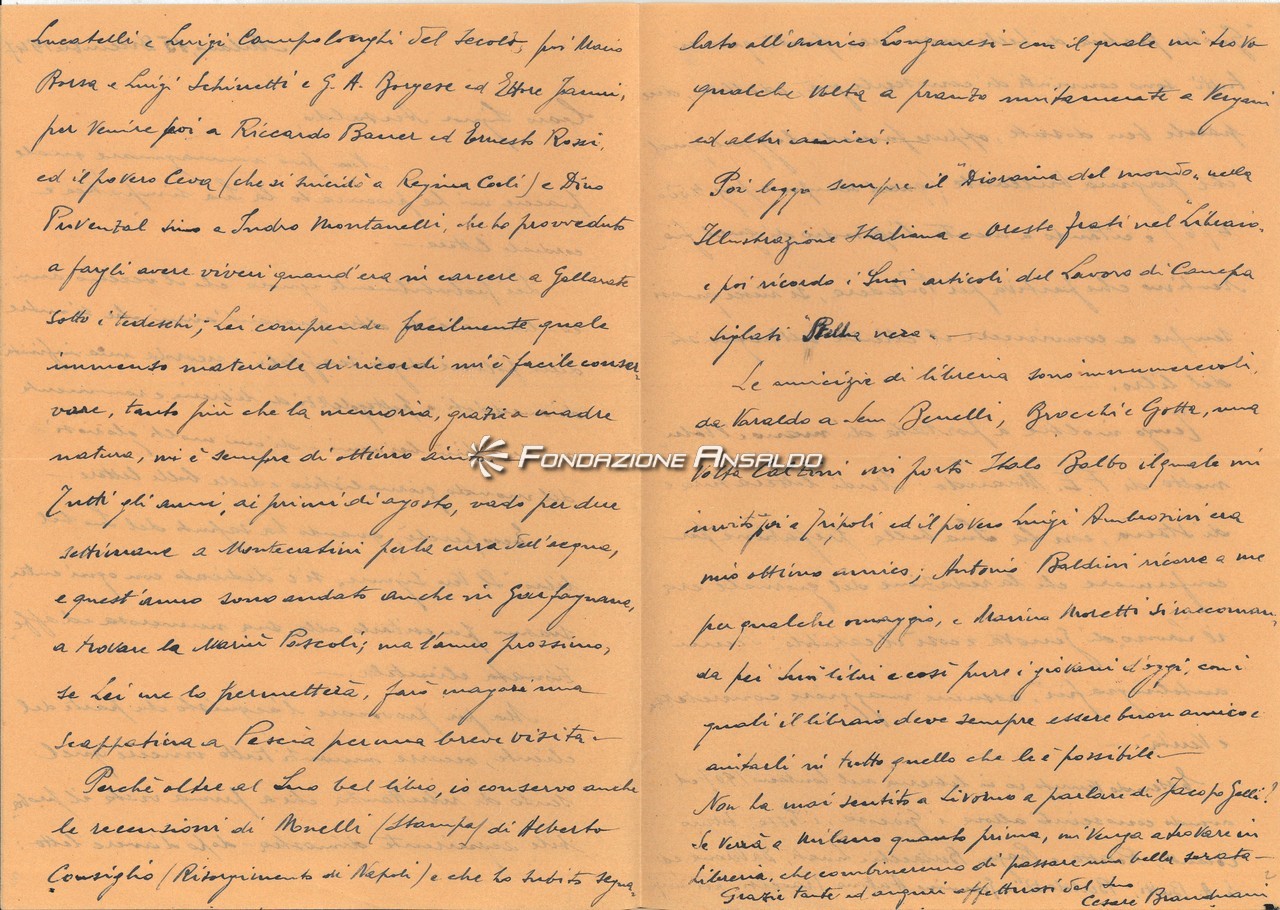 Lucatelli e Luigi Campolonghi del Secolo, poi Mario
Borsa e Luigi e G. A. Borgese ed Ettore Janni,
per venire poi a Riccardo Bauer ed Ernesto Rossi,
ed il povero Ceva (che si suicidò a Regina Coeli) e Dino
Provenzal sino a Indro Montanelli, che ho provveduto
a fargli avere viveri quand'era in carcere a Gallarate
sotto i tedeschi; Lei comprende facilmente quale
immenso materiale di ricordi mi è facile conser-
vare, tanto più che la memoria, grazie a madre
natura, mi è sempre di ottimo aiuto.
Tutti gli anni, ai primi di agosto, vado per due
settimane a Montecatini per la cura dell'acqua,
e quest'anno sono andato anche in Garfagnana,
a trovare la Mariù Pascoli; ma l'anno prossimo,
se Lei me lo permetterà, farò magari una
scappatina a Pescia per una breve visita -
Perchè oltre al Suo bel libro, io conservo anche
le recensioni di Monelli (Stampa) di Alberto
Consiglio (Risorgimento di Napoli) e che ho subito segna-
lato all'amico Longanesi - con il quale mi trovo
qualche volta a pranzo unitamente a Vergani
ed altri amici.
Poi leggo sempre il "Diorama del mondo" nella
Illustrazione Italiana e Oreste frati nel "Libraio"
e poi ricordo i Suoi articoli del Lavoro di Canepa
siglati "Stella nera" -
Le amicizie di libreria sono innumerevoli,
da Varaldo a Sem Benelli, Brocchi e Gotta, una
volta mi portò Italo Balbo il quale mi
invitò poi a Tripoli ed il povero Luigi Ambrosini era
mio ottimo amico; Antonio Baldini ricorre a me
per qualche omaggio, e Marino Moretti si raccoman-
da pei suoi libri e così pure i giovani d'oggi, con i
quali il libraio deve sempre essere buon amico e
aiutarli in tutto quello che le è possibile -
Non ha mai sentito a Livorno a parlare di Jacopo Gelli?
Se verrà a Milano quanto prima, mi venga a trovare in
libreria, che combineremo di passare una bella serata -
Grazie tante ed auguri affettuosi del Suo
Cesare Branduani
FONDAZIONE ANSALDO